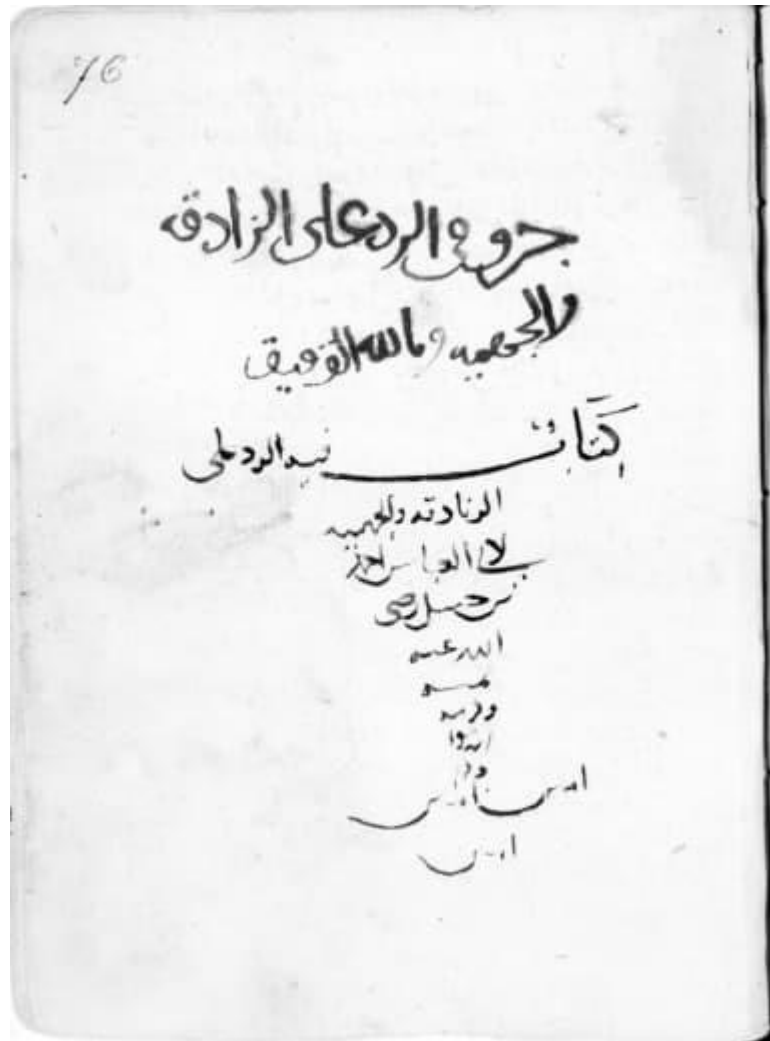 76
جزو في الرد على الزادقه
والجهميه وبالله التوفيق
كتاب فيه الرد على
الزنادقه والجهميه
لابي العباس احمد
بن حنبل رضي
الله عنه
امين امين
امين